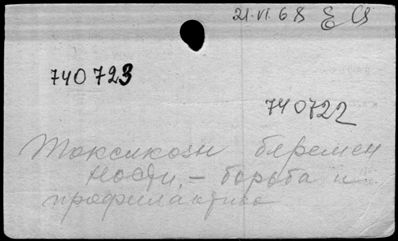 21.VI.68
740723
740722
Токсикозы беремен
ности, – борьба и
профилактика